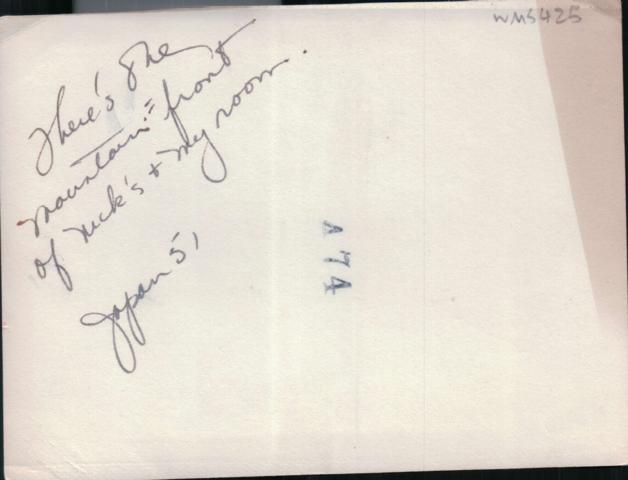 WMS425
There's the
mountain = front
of Nick's + my room.
Japan 51
A 74